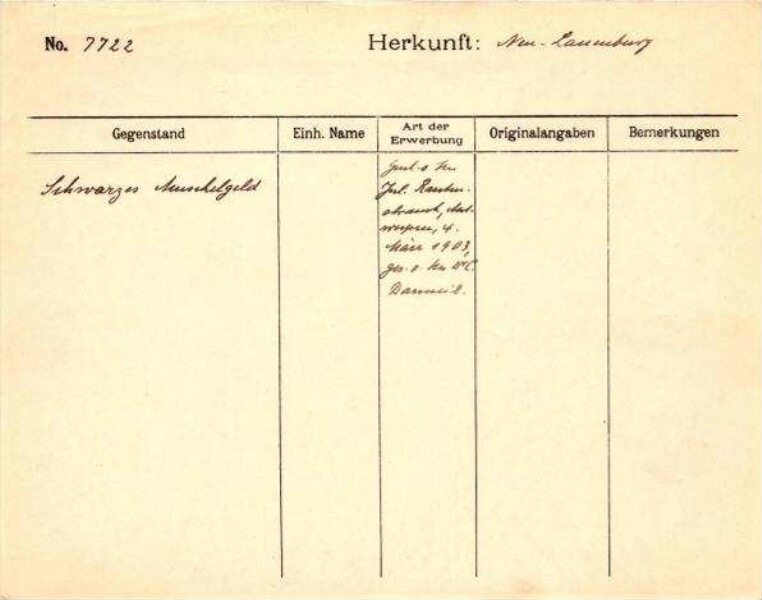 No. 7722
Herkunft: Neu-Lauenburg
Gegenstand
Einh. Name
Art der
Erwerbung
Originalangaben
Bemerkungen
Schwarzes Muschelgeld
Jul. Rauten-
strauch, Ant-
werpen, 4.
März 1903,
ges. v.